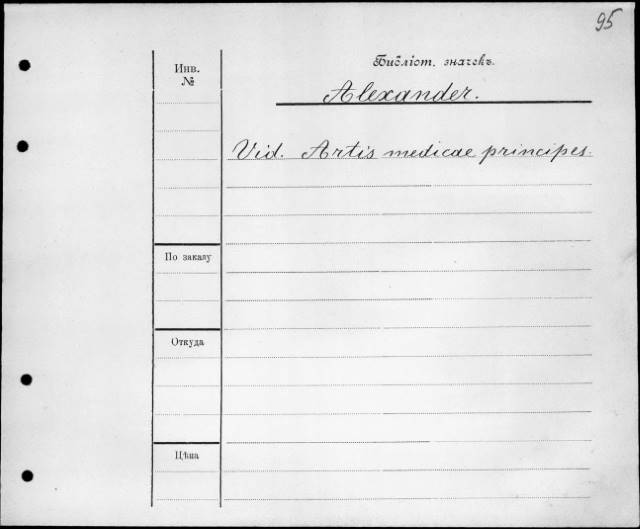 95
Библіот. значекъ.
Alexander.
Инв.
№
Vid. Artis medicae principes.
По заказу
Откуда
Цѣна